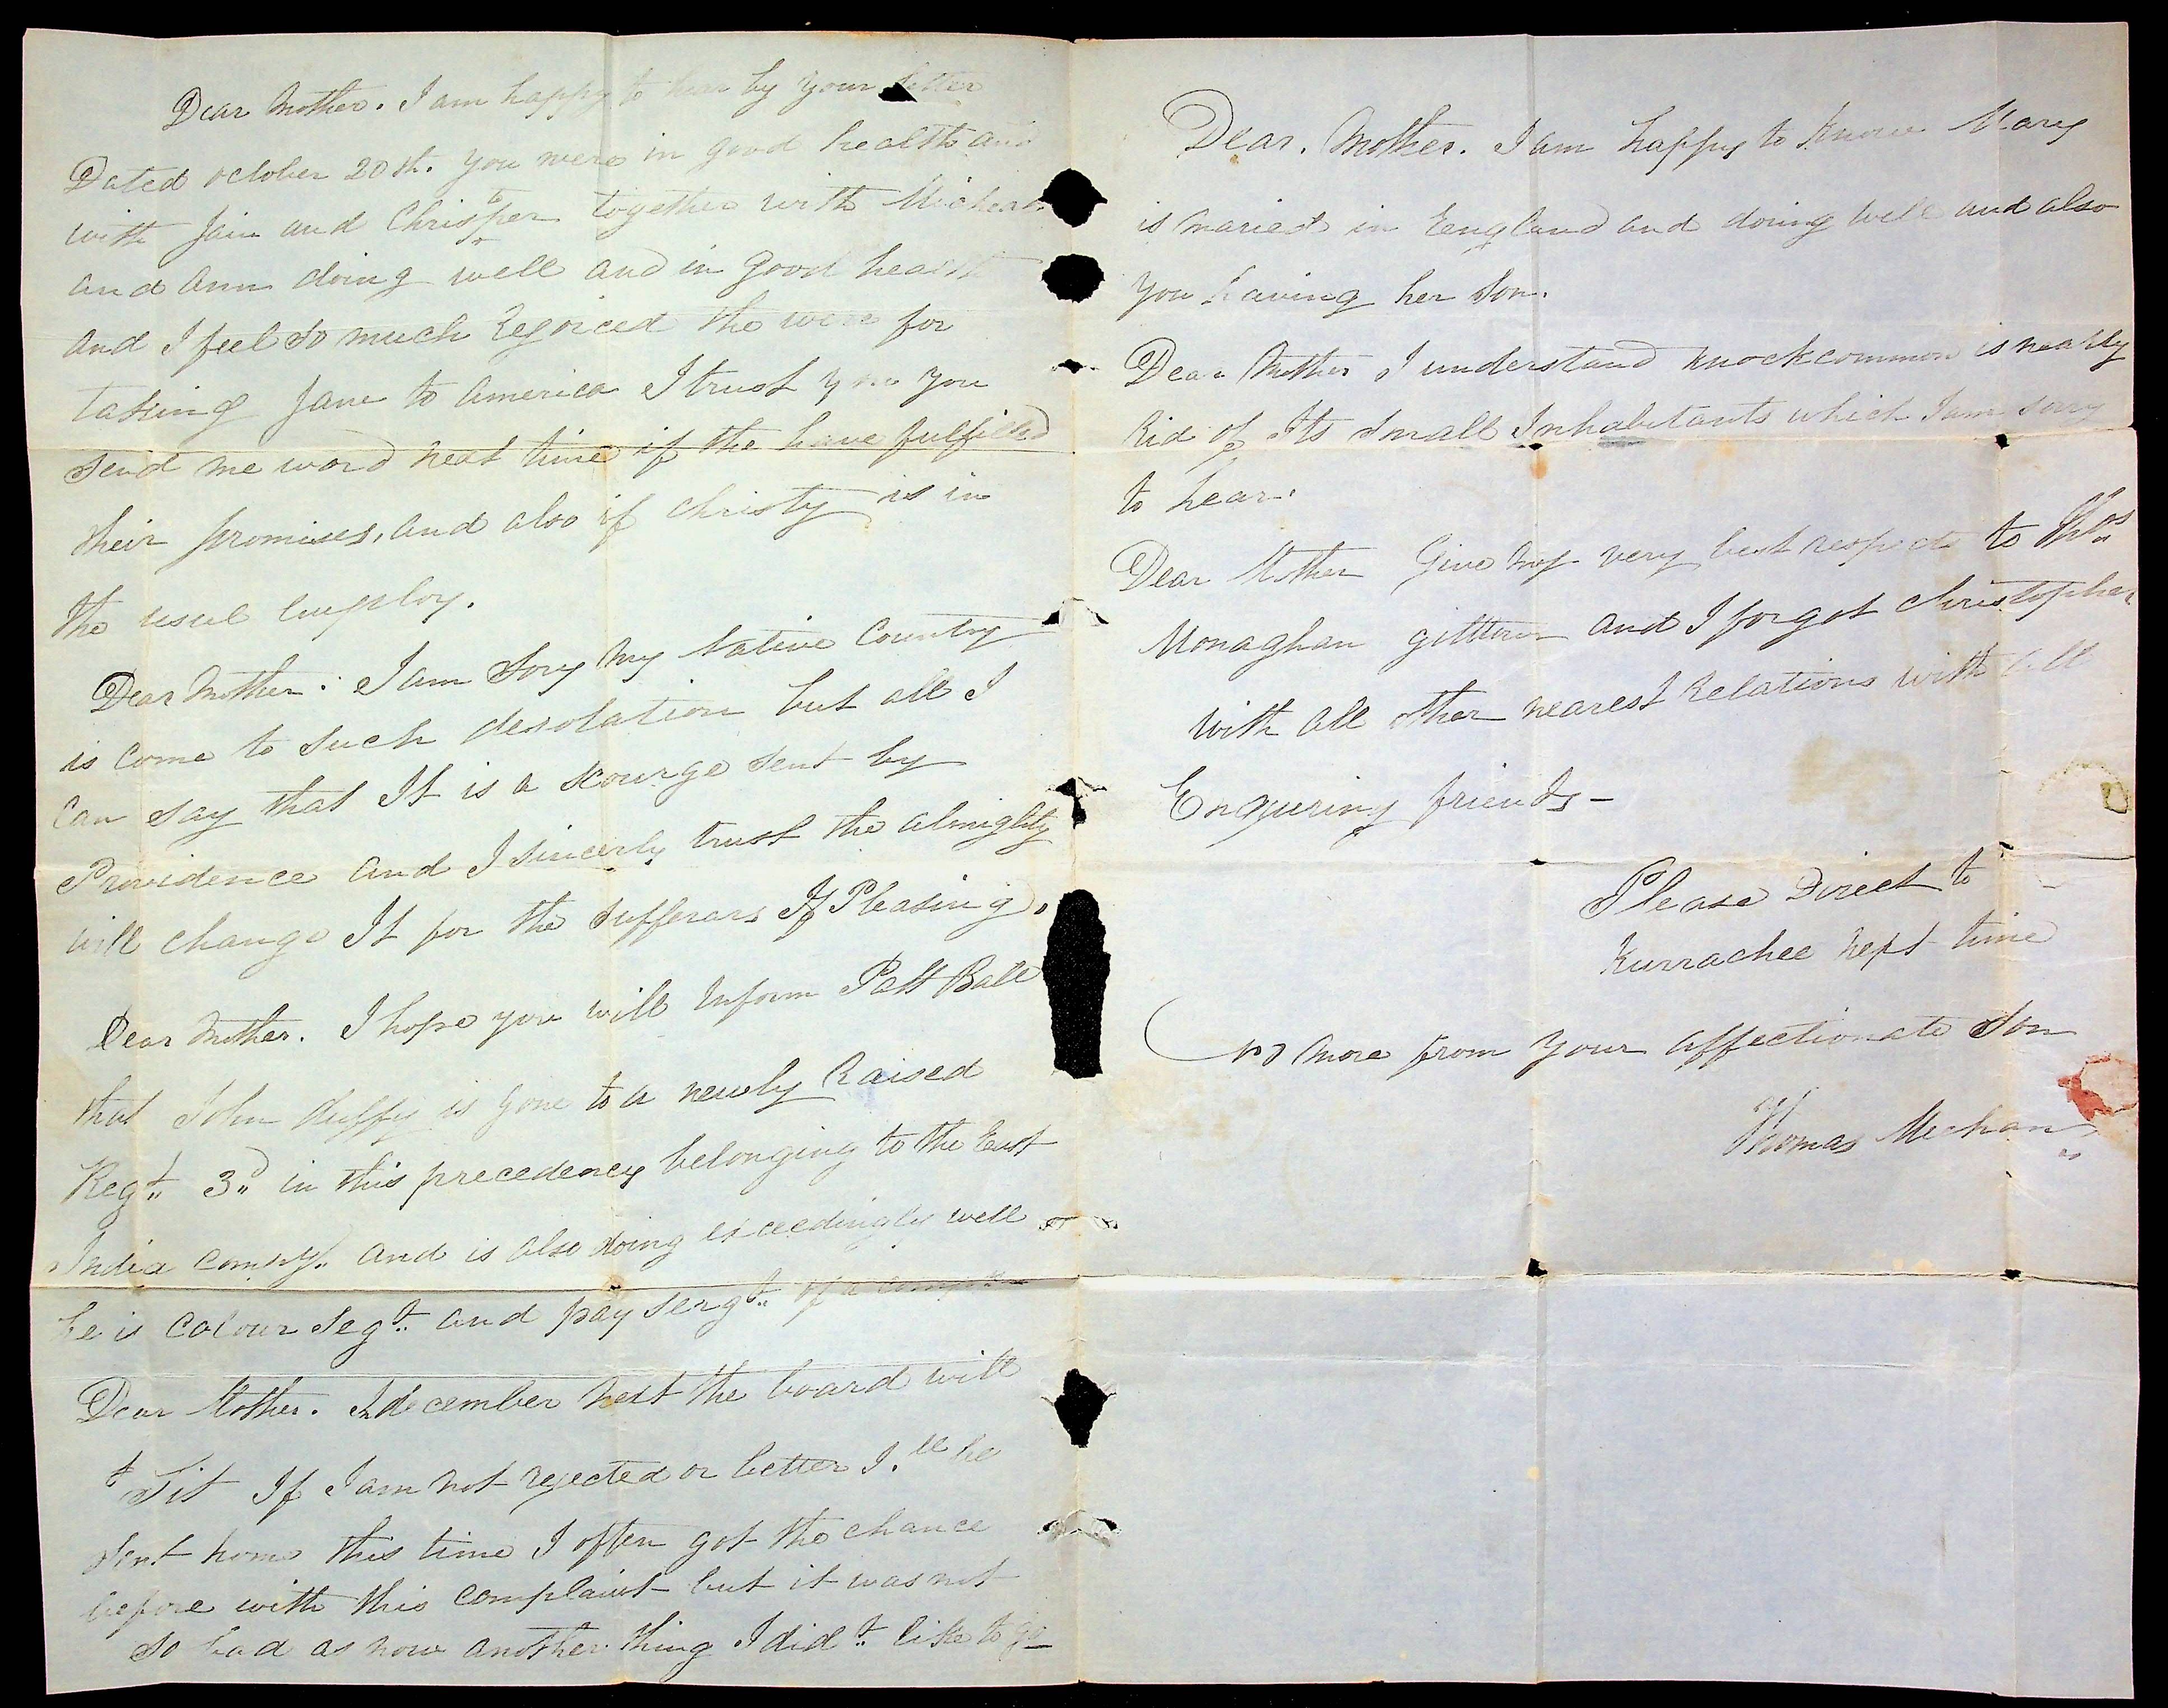 Dear Mother. I am happy to hear by your letter
Dated october 20th. you were in good health and
with Jain and Christoper together with Micheal
and Ann doing well and in good health
and I feel so much Rejoiced the were for
taking Jane to America I trust you
send me word next time if the have fulfilled
their promises, and also if christy is in
the usul employ.
Dear Mother. I am Sory my Native Country
is come to Such desolation but all I
can say that It is a scourge sent by
Providence and I sincerly trust the almighty
will change It for the sufferars If Pleasing.
Dear Mother. I hope you will Inform Patt Ball
that John duffy is gone to a newly Raised
Regt. 3d in this precedency belonging to the East
India Compy. and is also doing exceedingly well
he is Colour Segt. and pay sergt. of a
Dear Mother. In december next the board will
Sit If I am not rejected or better I.ll be
sent home this time I often got the chance
before with this complaint but it was not
So bad as now another thing I didt. like to go
Dear. Mother. I am happy to know Mary
is maried in England and doing well and also
you having her Son.
Dear Mother I understand knockcommon is nearly
Rid of Its Small Inhabitants which I am sory
to hear.
Dear Mother Give my very best respects to Thos.
Monaghan gilltown and I forgot christopher
with all other nearest Relations with all
Enquring friends-
Please Direct to
Kurrachee next time
No More from your affectionate Son
Thomas Meehan